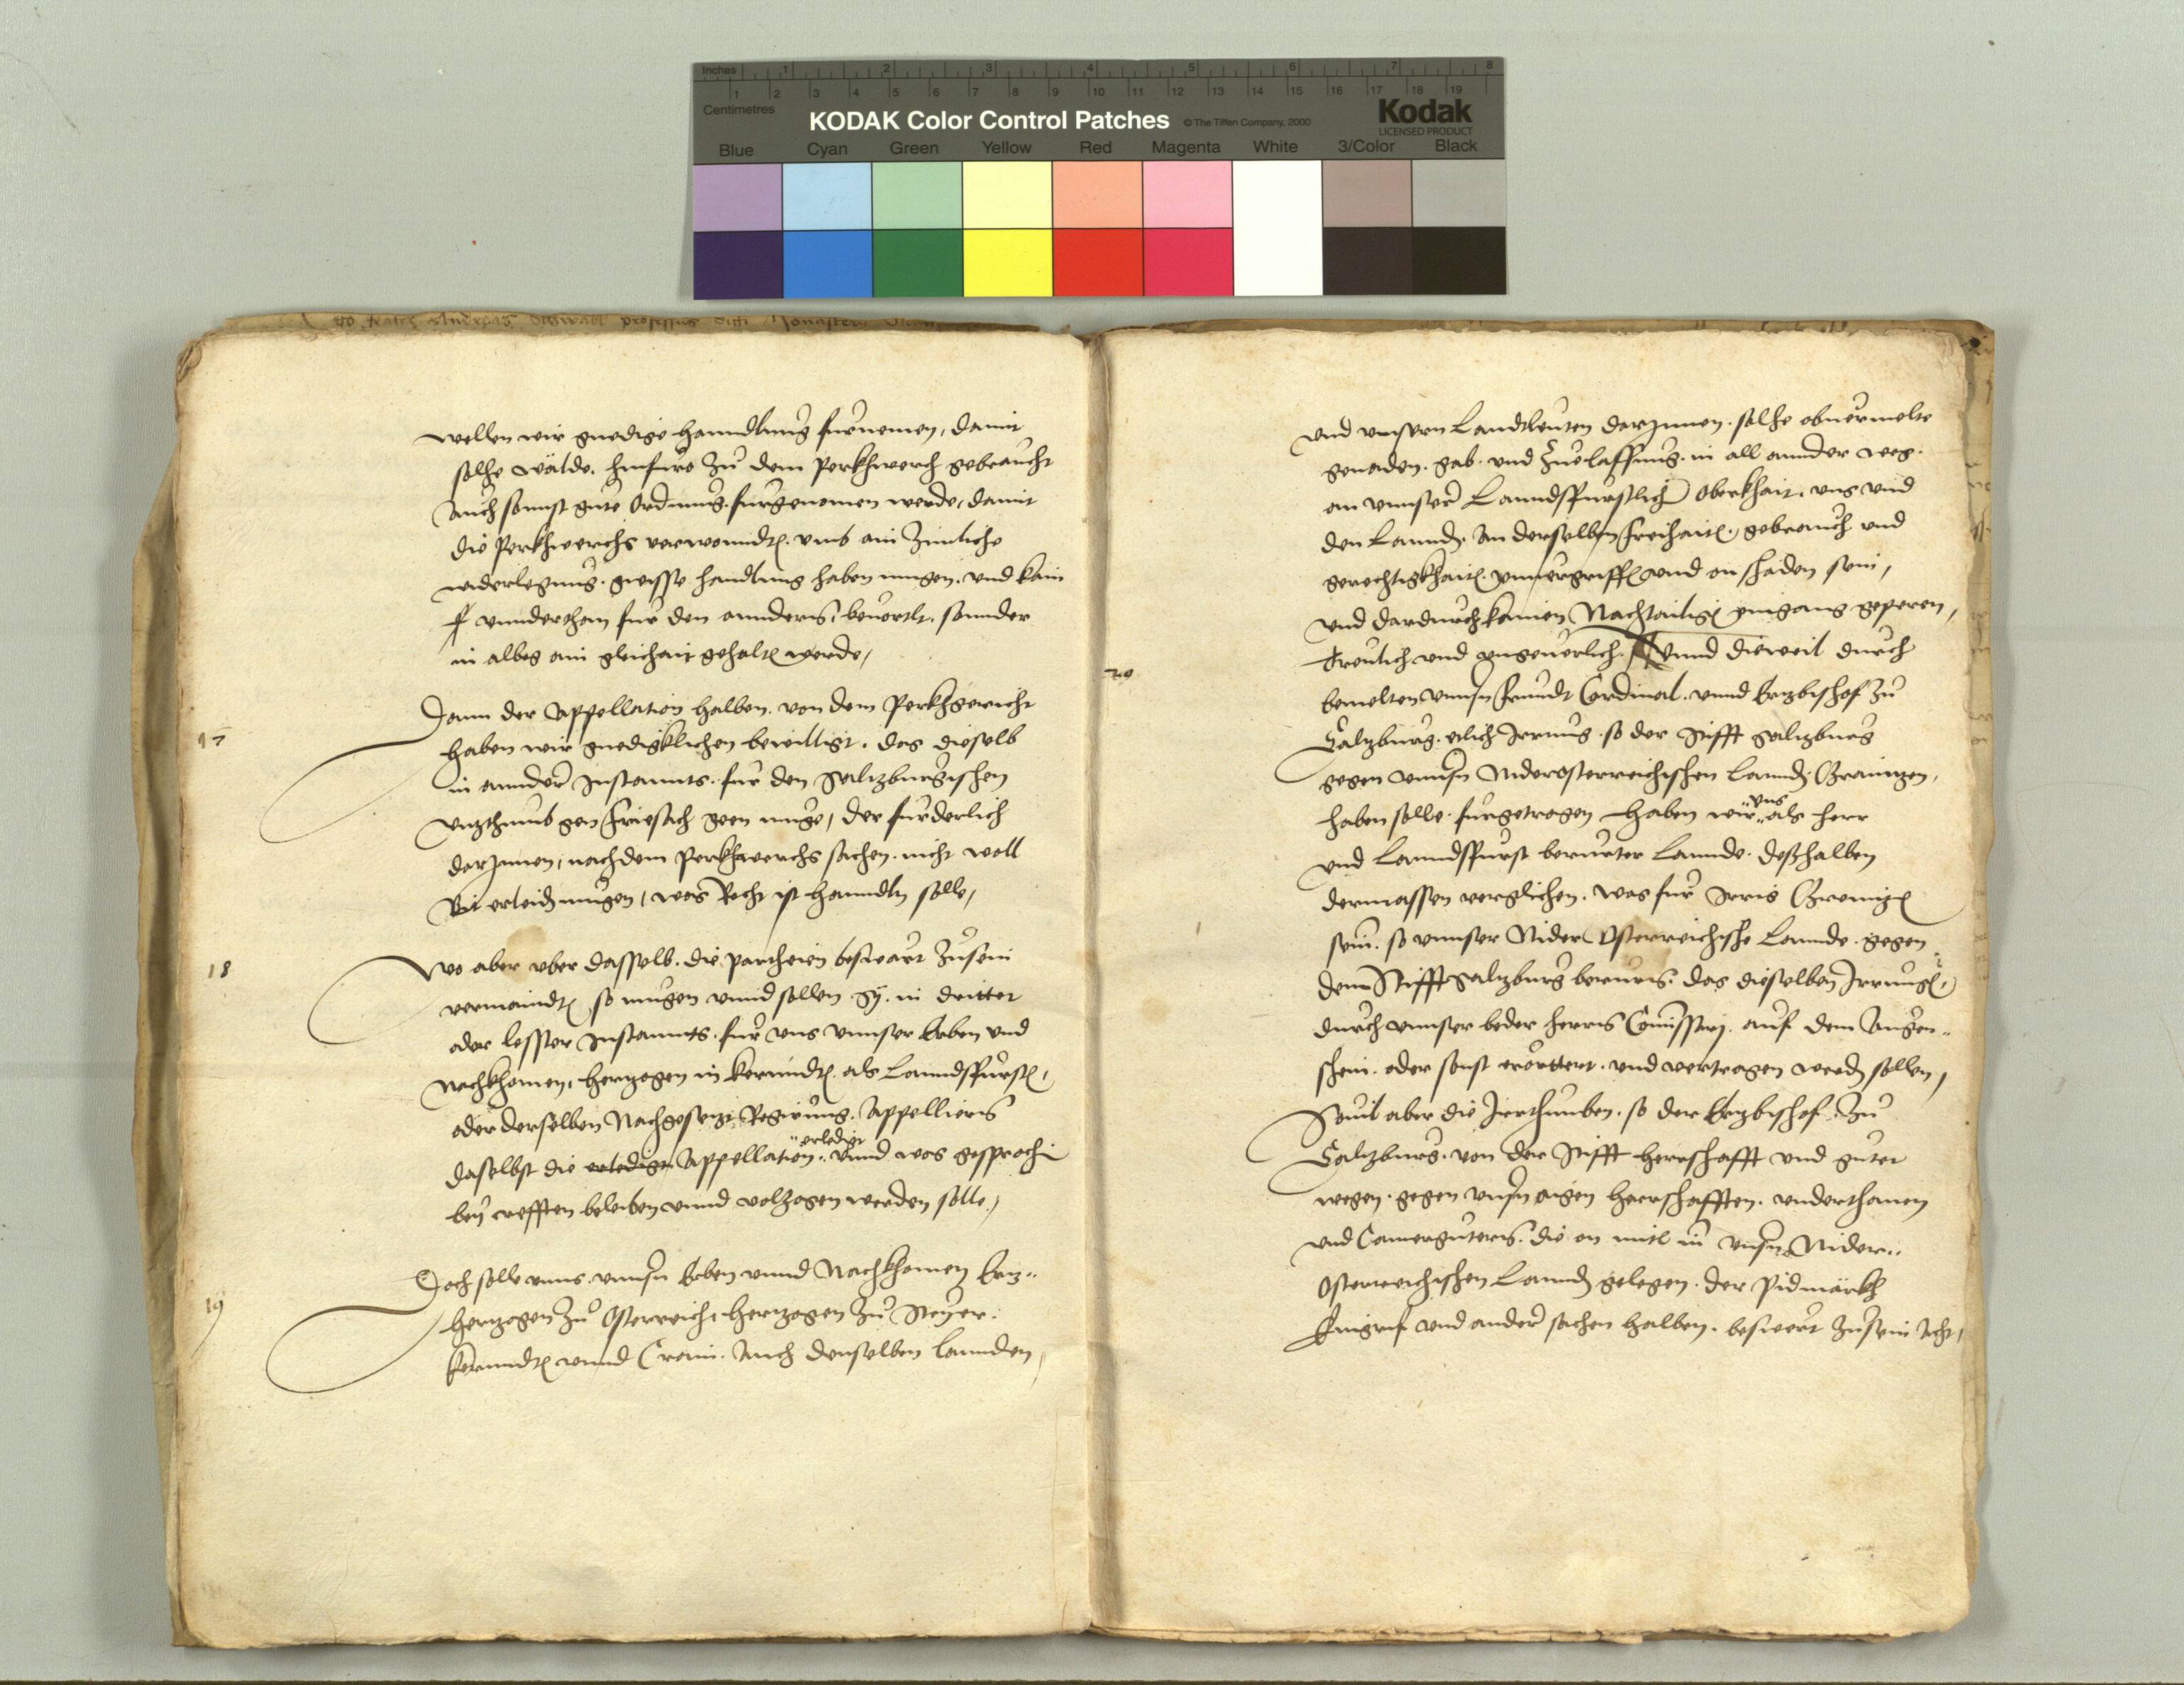 Inches 1 2 3 4 5 6 7 8
Centimetres 1 2 3 4 5 6 7 8 9 10 11 12 13 14 15 16 17 18 19
KODAK Color Control Patches © The Tiffen Company, 2000 Kodak
LICENSED PRODUCT
Blue Cyan Green Yellow Red Magenta White 3/Color Black
wellen wir gnedige hanndlung furnemen, damit
solhe wälde. hinfuro zu dem perkhwerch gebraucht
Auch sonnst gute Ordnung. furgenomen werde, damit
die perkhwerchs verwonndtn. umb ain zimliche
widerlegung. gwisse handlung haben mugen. und kain
unnderthan fur den anndern bevortlt. sonnder
in albeg ain gleichait gehaltn werde,
17
Dann der Appellation halben. von dem perkhgericht
haben wir gnedigklichen bewilligt. das dieselb
in annder Instannts. fur den Saltzburgischen
vitzthumb gen Friesach geen muge, der furderlich
darinnen, nach dem perkhwerchs sachen. nicht woll
erleiden mugen, was Recht ist hanndln solle,
18
Wo aber uber dasselb. die partheien beswärt zusein
vermaindtn so mugen unnd sollen sy. in dritter
oder lesster Instannts. fur uns unnser Erben und
nachkhomen, hertzogen in kerndtn. als Lanndsfurstn,
oder derselben Nachgesetzt Regirung. Appelliern
erledigt
daselbst die erledigt Appellation. unnd was gesprochn
bey crefften beleiben unnd volzogen werden solle,
19
Doch solle unns. unnsern Erben unnd Nachkhomen Ertz..
hertzogen zu Osterreich, hertzogen zu Steyer.
kerndtn unnd Crain. Auch denselben lannden,
und unnsern Landtleuten darinnen. solhe obvermelte
genaden. gab. und Zuelassung. in all annder weg.
an unnser Lanndsfurstlich Oberkhait, uns und
den Lannden. An derselben Freihaitn, gebrauch und
gerechtigkhaitn. unvergriffn und on schaden sein,
und dardurch kainen Nachtailign eingang geperen,
20
Treulich und ungeverlich. Unnd dieweil durch
bemelten unnsern Freundt Cardinal. unnd Ertzbischof zu
Saltzburg. etlich Irrung. so der Stifft Saltzburg
gegen unnsern Niderosterreichischen Lannden. Granitzen,
uns
haben solle. furgetragen haben wir als herr
und Lanndsfurst berurter Lannde. deßhalben
dermassen verglichen. was fur Irrig Granitzn
sein. so unnser Nider Osterreichische Lannde. gegen
dem Stifft Saltzburg berurn. das dieselben Irrungn,
durch unnser beder herrn Comissarj. auf dem Augen..
schein. oder sonst erörttert. und vertragen werden sollen,
Sovil aber die Irrthumben. so der Ertzbischof. zu
Saltzburg. von der Stifft herrschafft und guter
wegen. gegen unnsern aigen herrschafften. underthanen
und Camergutern. die on mitl in unnsern Nider..
Osterreichischen Lannden gelegen. der pidmärkh
Eingrif und ander sachen halben. beswert zusein Acht,